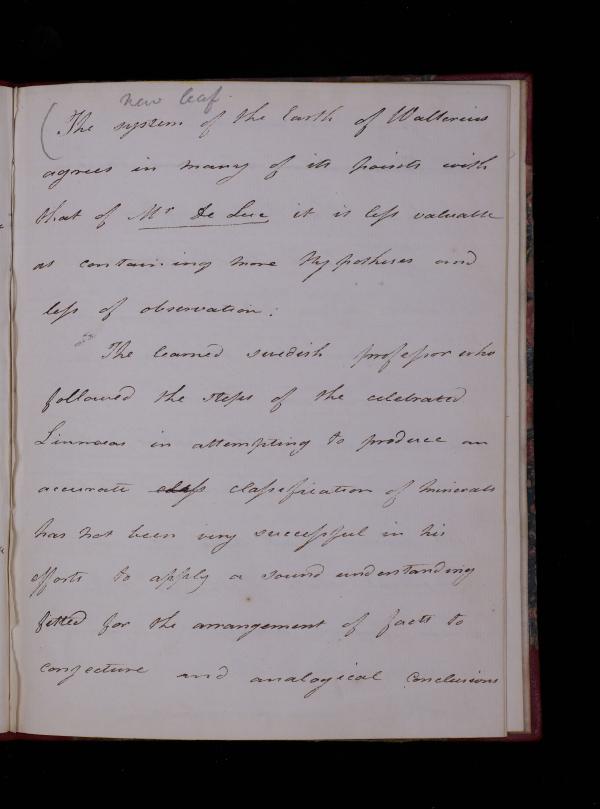 new leaf
(The system of the Earth of Wallerius
agrees in many of its points with
that of Mr De Luc it is less valuable
as containing more Hypotheses and
less of observation:
The learned swedish professor who
followed the steps of the celebrated
Linnaeas in attempting to produce an
accurate class classification of minerals
has not been very successful in his
efforts to apply a sound understanding
fitted for the arrangement of facts to
conjecture and analogical conclusions